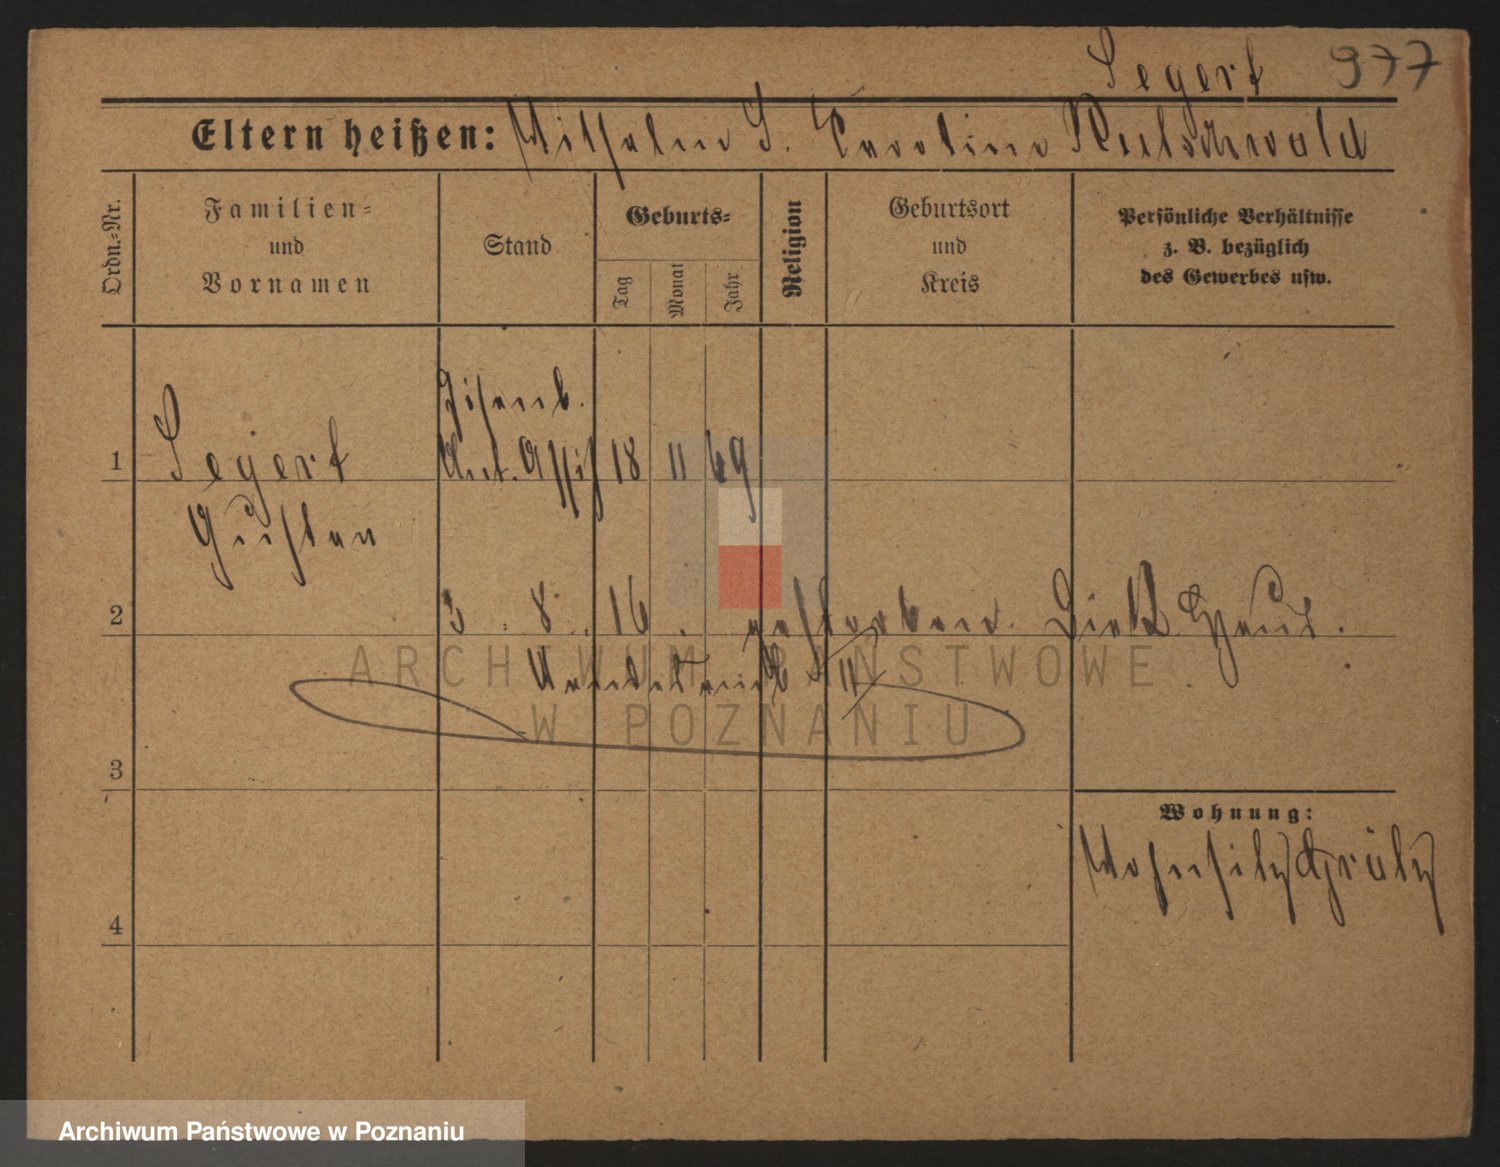 Segert 977
Eltern heißen: Wilhelm S. Caroline
Ordn.=Nr.
Familien=
und
Vornamen
Stand
Geburts=
Tag
Monat
Jahr
Religion
Geburtsort
und
Kreis
Persönliche Verhältnisse
z. B. bezüglich
des Gewerbes usw.
Eisenb.
1 Segert Assis 18 11 69
Gustav
2 3. 8. 16. gestorben. Diak. Haus.
ARCHIWUM PAŃSTWOWE
W POZNANIU
3
Wohnung:
Wohnsitz Grätz
4
Archiwum Państwowe w Poznaniu